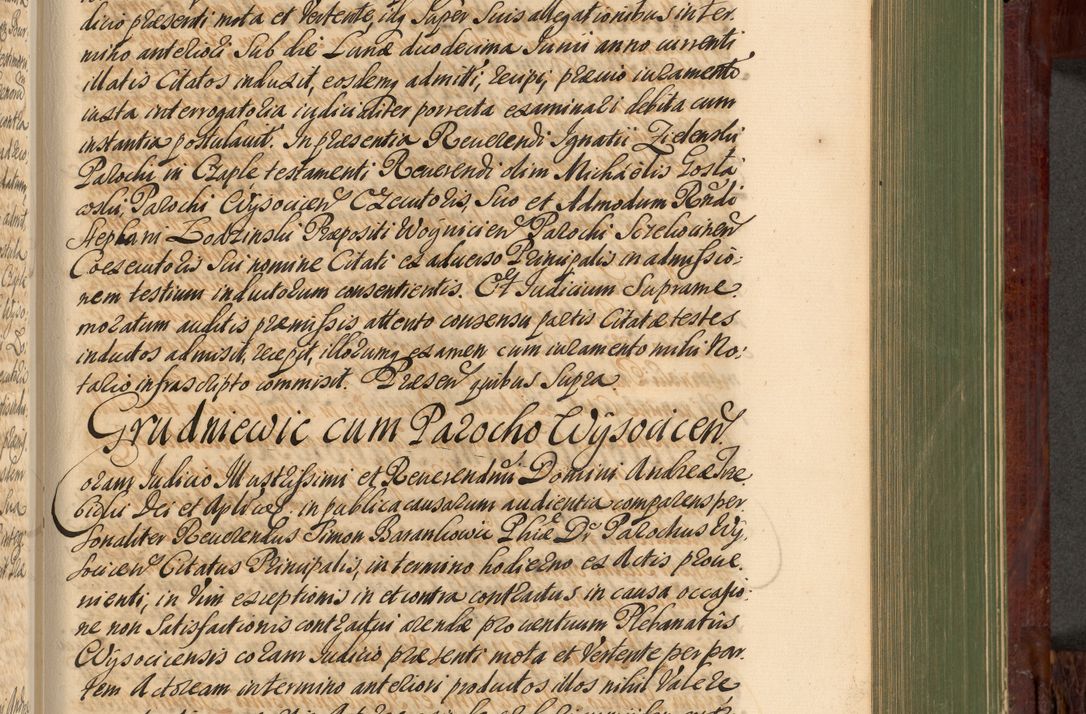 dicio præsenti mota et Vertente, idq Super Suis allegationibus in ter
mino anteriori Sub die Lunæ duodecima Junii anno currenti
illatis Citatos induxit, eosdemq admitti, recipi, prævio iuramento
iuxta interrogatoria iudicialiter porrecta examinari debita cum
instantia postulavit. In præsentia Reverendi Ignatii Zielenski
Parochi in Czaple testamenti Reverendi olim Michaëlis Gosta
wski, Parochi Wysocicen Executoris, Suo et Admodum Rndi
Stephani Łodzinski Præpositi Woynicien Parochi
Coexecutoris Sui nomine Citati ex adverso Principalis in admissio:
nem testium inductorum consentientis. Et Judicium Supræme:
moratum auditis præmissis attento consensu partis Citatæ testes
inductos admisit, recepit, illorumq examen cum iuramento mihi No:
tario infrascripto commisit. Præsen quibus Supra.
Grudniewic cum Parocho Wysocicen
Coram Judicio Illustrissimi et Reverendmi Domini Andreæ Trze
bicki Dei et Aplicæ in publica causarum audientia comparens per
Sonaliter Reverendus Simon Barankowic Phiæ Dr Parochus Wy,
socicen Citatus Principalis, in termino hodierno ex Actis prove:
nienti, in Vim exceptionis in et contra contractus in causa occasio:
ne non Satisfactionis contractui arendæ proventuum Plebanatûs
Wysocicensis coram Judicio præsenti mota et Vertente per par
tem Actoream in termino anteriori productos illos nihil Valere